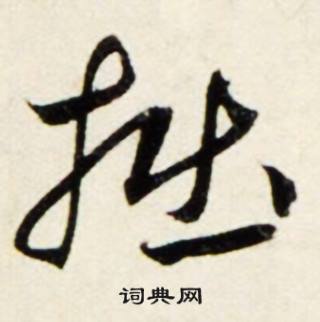 拙
词典网